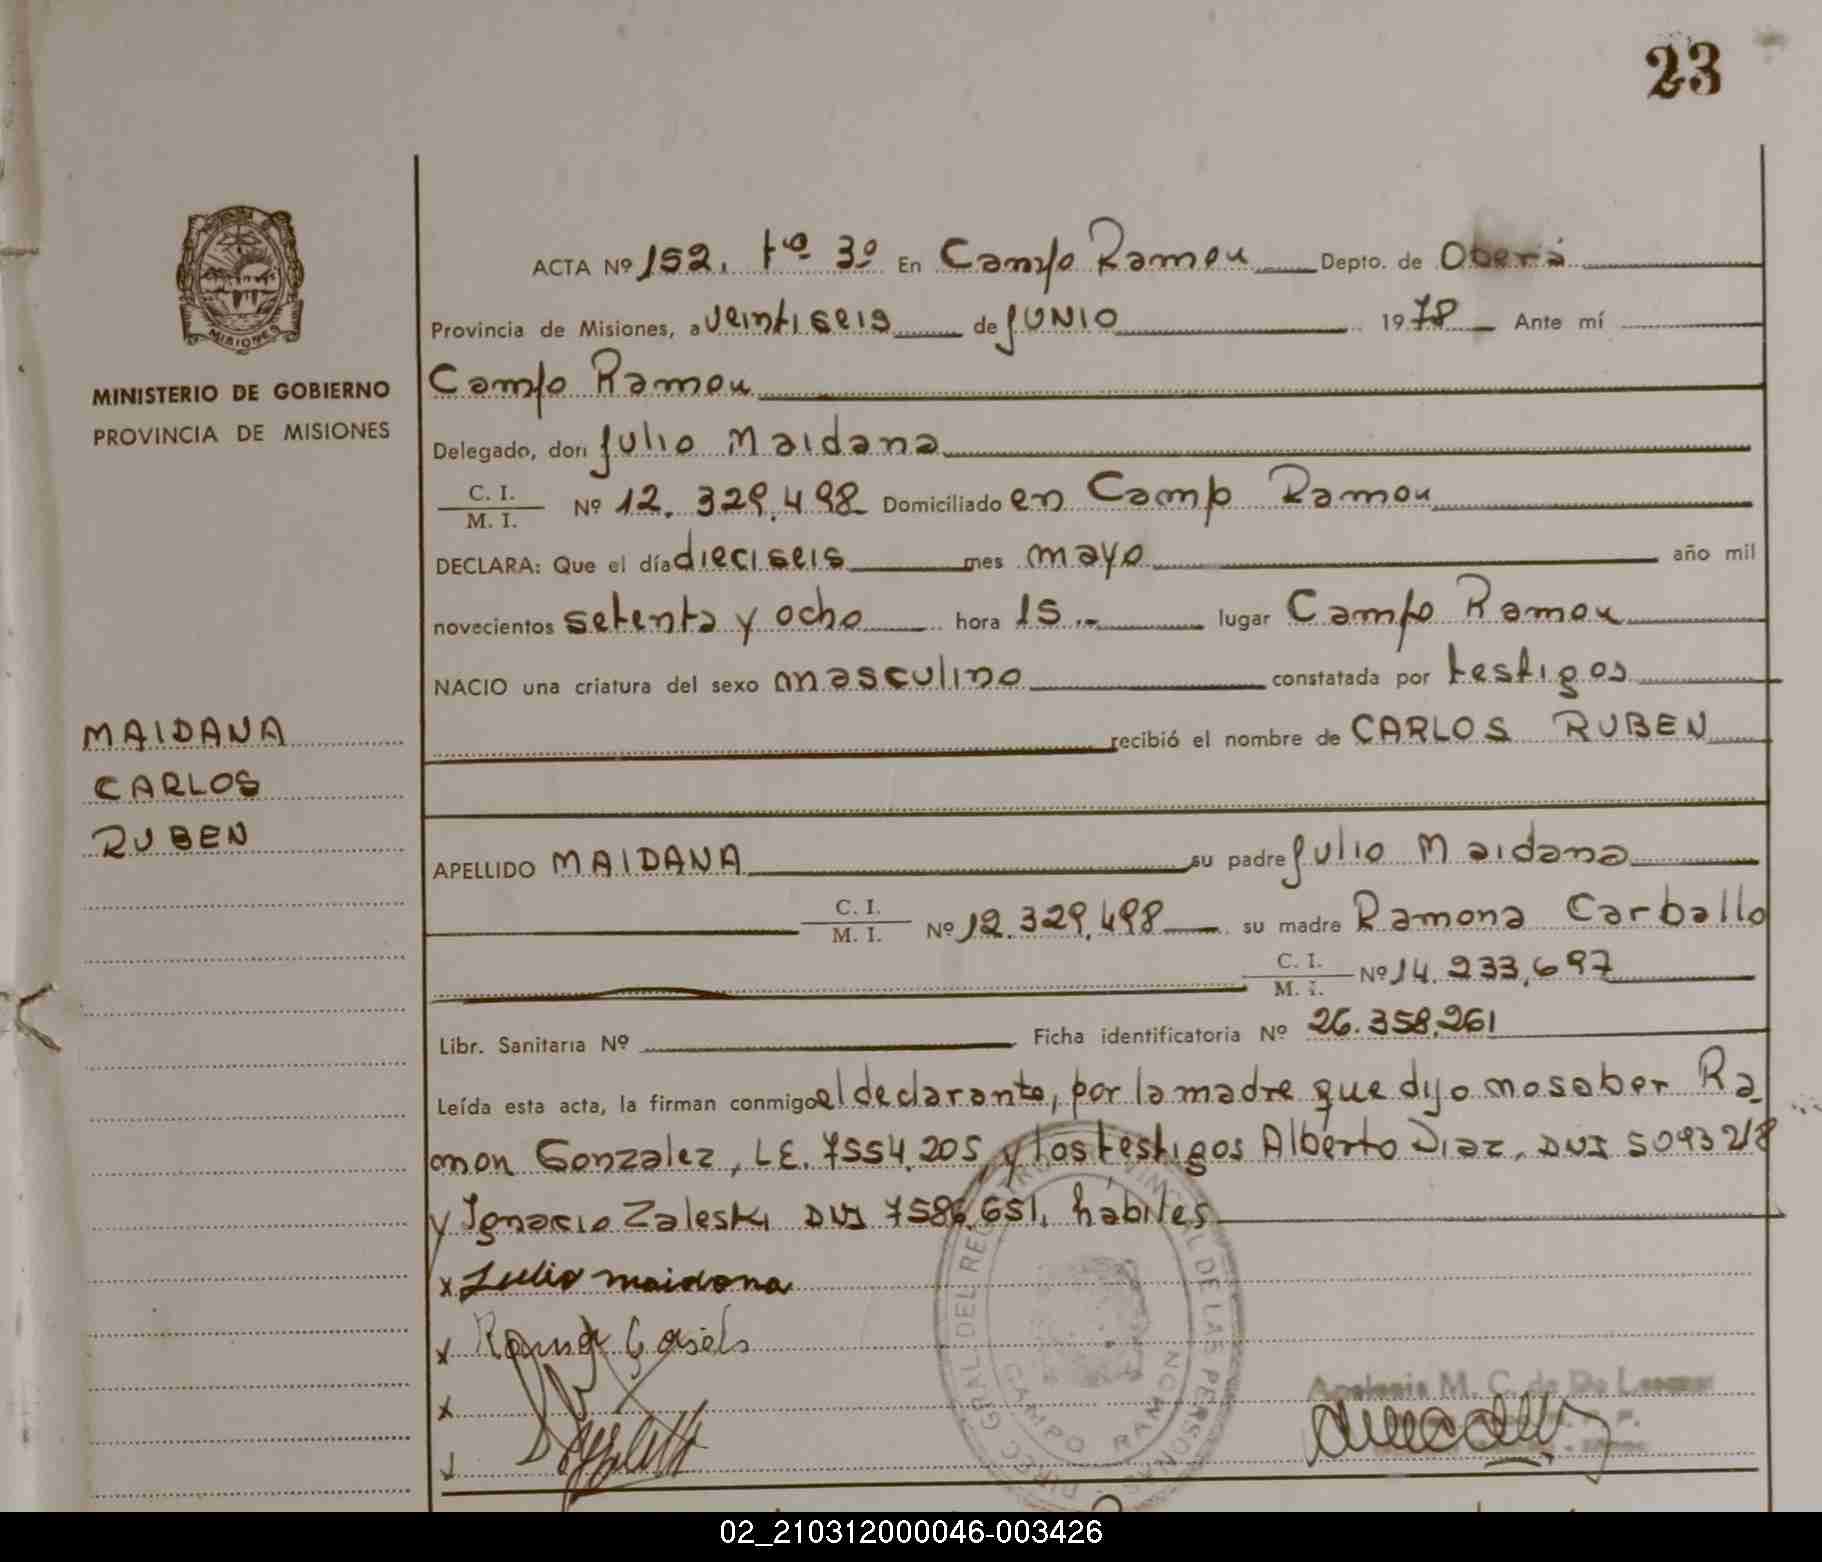 23
ACTA Nº 152. tº 3º En Campo Ramon Depto. de Oberá
Provincia de Misiones, a veintiseis de JUNIO 1978 Ante mí
MINISTERIO DE GOBIERNO
PROVINCIA DE MISIONES
MISIONES
Campo Ramon
Delegado, don Julio Maidana
C. I.
M. I.
Nº 12.329.498 Domiciliado en Camp Ramon
DECLARA: Que el día dieciseis mes mayo año mil
novecientos setenta y ocho hora 15.- lugar Campo Ramon
NACIO una criatura del sexo masculino constatada por testigos
recibió el nombre de CARLOS RUBEN
MAIDANA
CARLOS
RUBEN
APELLIDO MAIDANA su padre Julio Maidana
C. I.
M. I.
Nº 12.329.498 su madre Ramona Carballo
C. I.
M. I.
Nº 14.233.697
Libr. Sanitaria Nº Ficha identificatoria Nº 26.358.261
Leída esta acta, la firman conmigo el declarante, por la madre que dijo no saber Ra
mon Gonzalez, LE. 7554.205, y los testigos Alberto Diaz, DNI 5093218
y Ignacio Zaleski DNI 7586.651. hábiles
x Julio maidana
x
x
DIREC. GRAL. DEL REGISTRO PROVINCIAL DE LAS PERSONAS
CAMPO RAMON
Apolonia M. C. de De
02_210312000046-003426